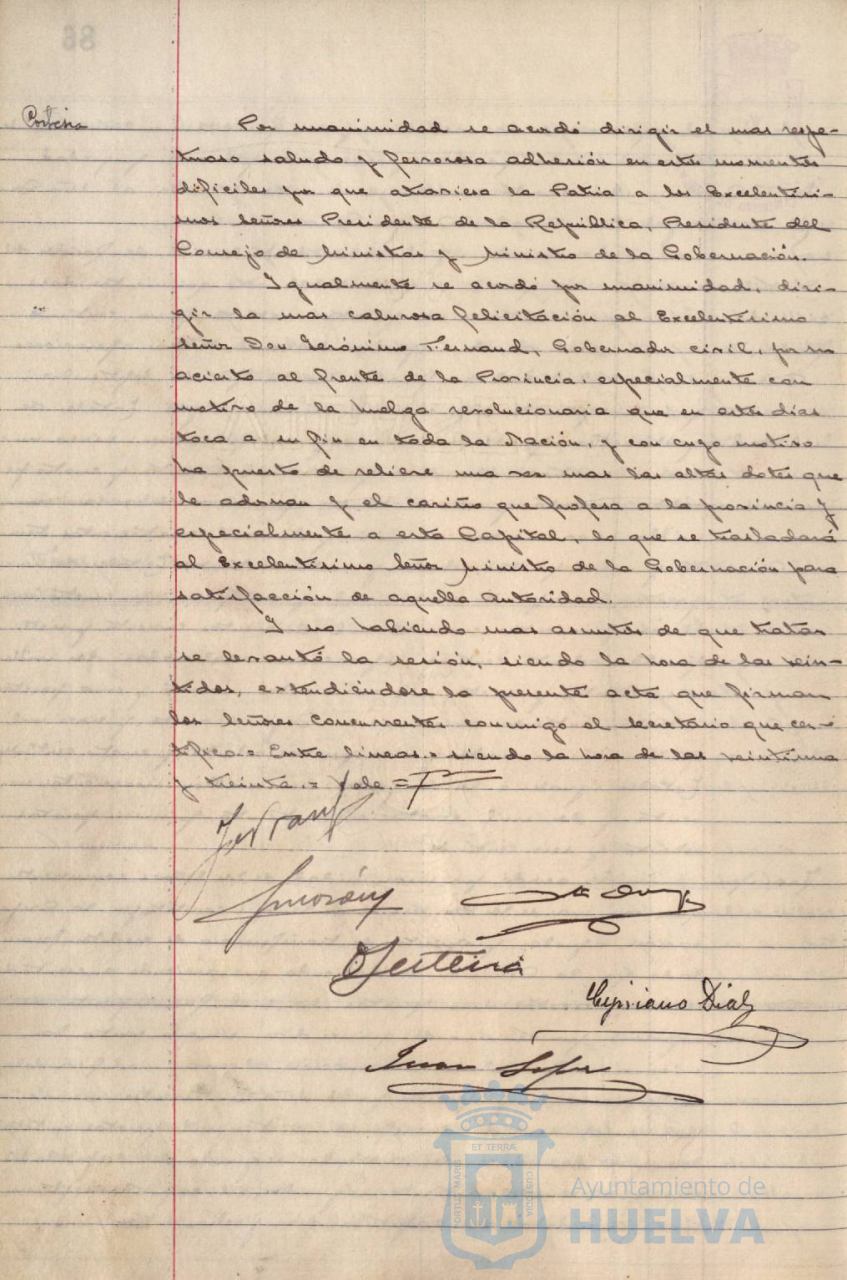 Por unanimidad se acordó dirigir el mas respe-
tuoso saludo y fervorosa adhesión en estos momentos
dificiles por que atraviesa la Patria a los Excelentisi-
mos Señores Presidente de la República, Presidente del
Consejo de Ministros y Ministro de la Gobernación.
Igualmente se acordó por unanimidad, diri-
gir la mas calurosa felicitación al Excelentisimo
Señor Don Gerónimo Fernaud, Gobernador civil, por su
acierto al frente de la Provincia, especialmente con
motivo de la huelga revolucionaria que en estos dias
toca a su fin en toda la Nación, y con cuyo motivo
ha puesto de relieve una vez mas las altas dotes que
le adornan y el cariño que profesa a la provincia y
especialmente a esta Capital, lo que se trasladará
al Excelentisimo Señor Ministro de la Gobernación para
satisfacción de aquella autoridad.
Y no habiendo mas asuntos de que tratar
se levantó la sesión, siendo la hora de las vein-
tidos, extendiendose la presente acta que firman
los Señores concurrentes conmigo el Secretario que cer-
tifico.= Entre lineas.= siendo la hora de las veintiuna
y treinta.= Vale.=
Cipriano Diaz
Juan
ET TERRÆ
PORTUS MARIS
CUSTODIA
Ayuntamiento de
HUELVA